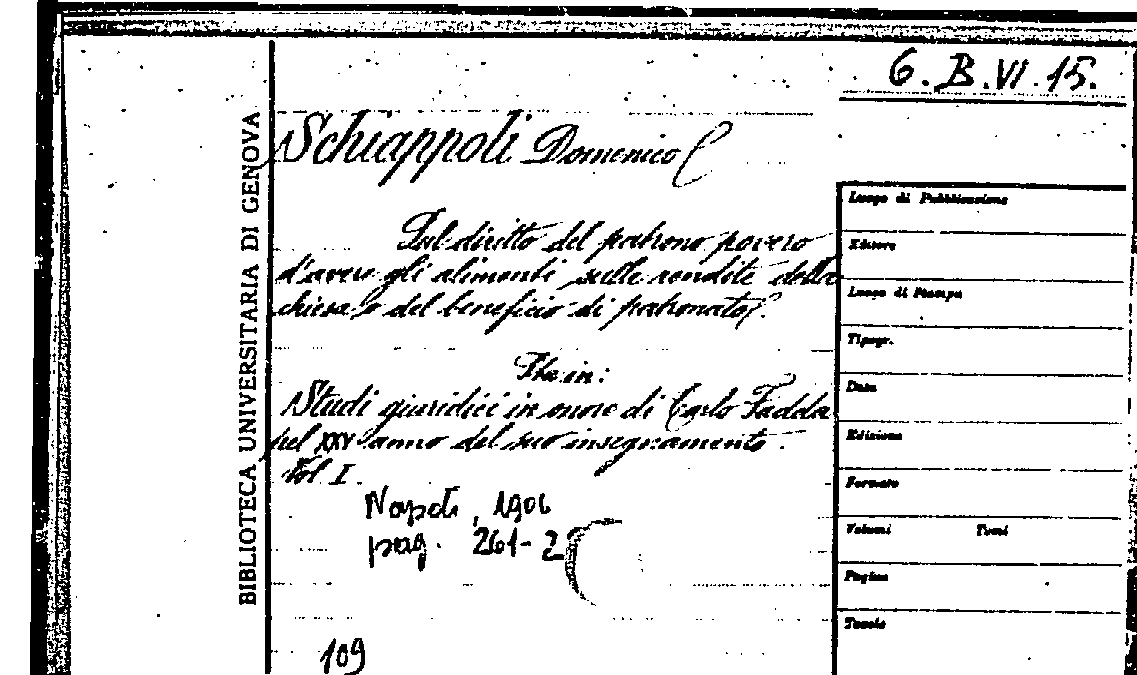 6.B.VI.15.
BIBLIOTECA UNIVERSITARIA DI GENOVA
Schiappoli Domenico
Sul diritto del patrono povero
d'avere gli alimenti sulle rendite della
chiesa o del beneficio di patronato.
Sta in:
Studi giuridici in onore di Carlo Fadda
pel XXV anno del suo insegnamento.
Vol. I.
Napoli, 1906
pag. 261-2
109
Luogo di Pubblicazione
Editore
Luogo di Stampa
Tipogr.
Data
Edizione
Formato
Volumi Tomi
Pagine
Tavole